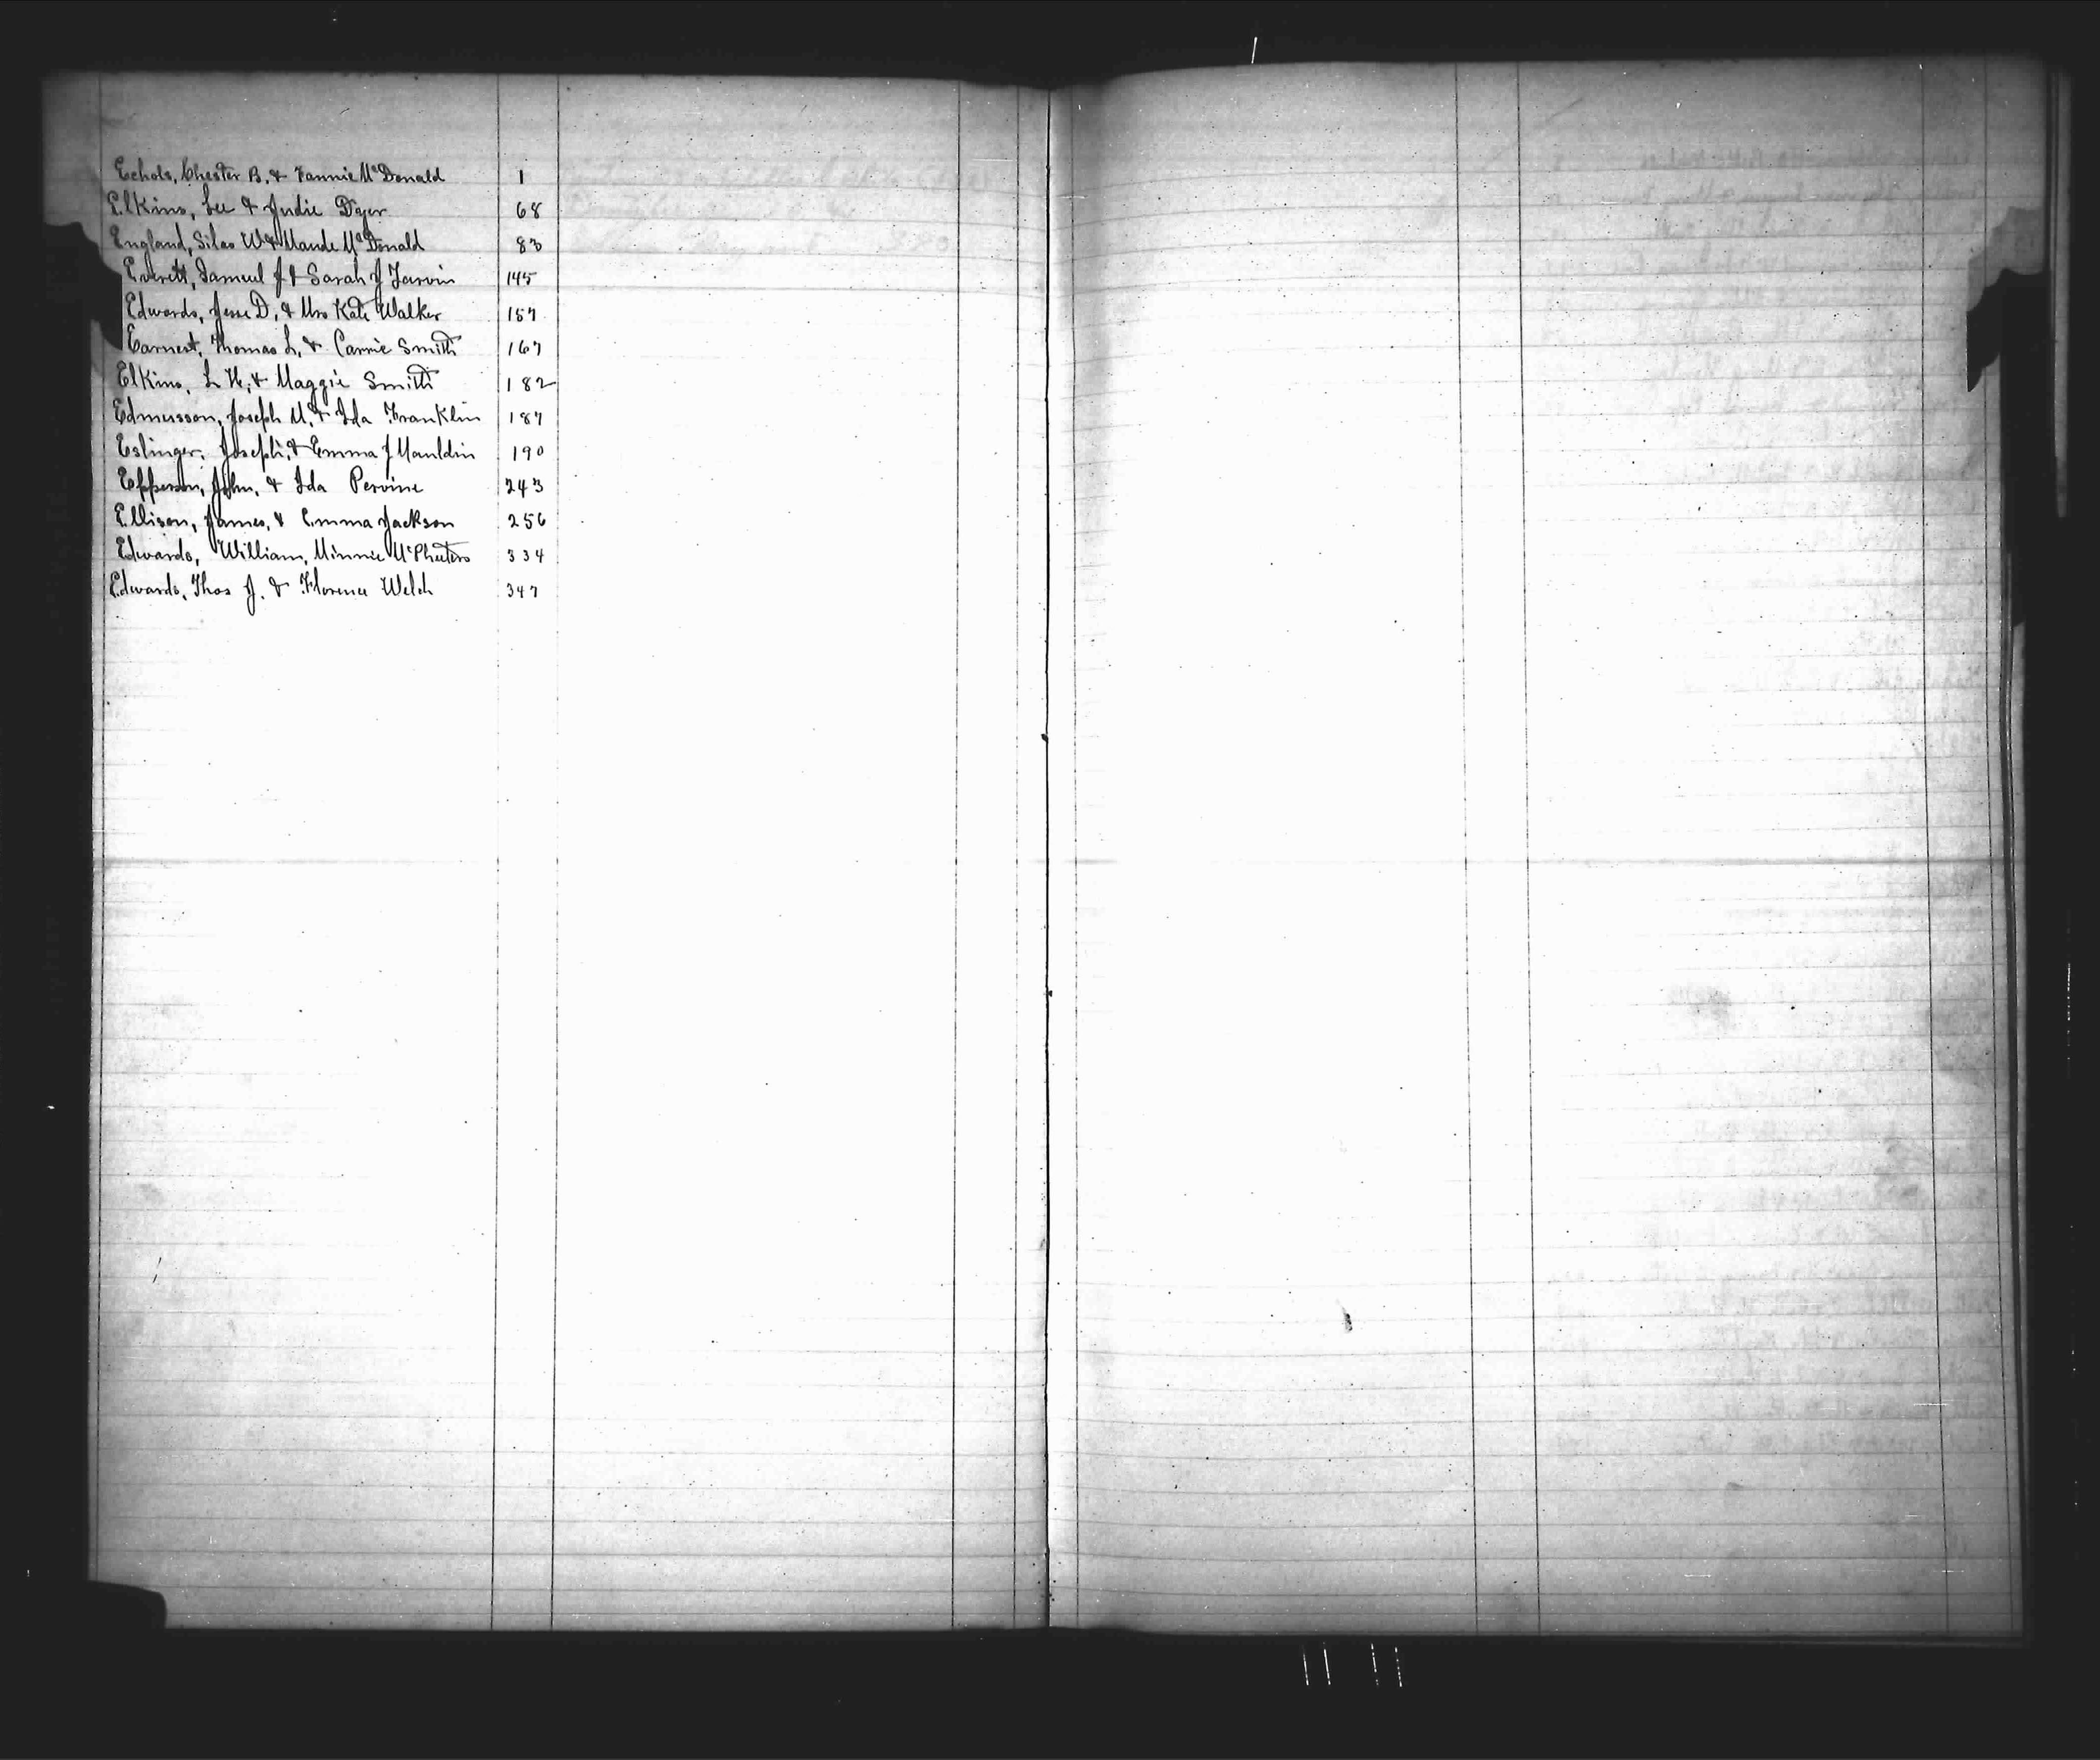 Echols, Chester B. & Fannie McDonald 1
Elkins, Lee & Judie Dyer 68
England, Silas W & Maude McDonald 83
Everett, Samuel J & Sarah J Jarvin 145
Edwards, Jesse D, & Mrs Kate Walker 157
Earnest, Thomas L, & Carrie Smith 167
Elkins, L H, & Maggie Smith 182
Edmusson, Joseph M, & Ida Franklin 187
Eslinger, Joseph, & Emma J Mauldin 190
Epperson, John, & Ida Pervine 243
Ellison, James, & Emma Jackson 256
Edwards, William, Minnie McPheeters 334
Edwards, Thos J. & Florence Welch 347